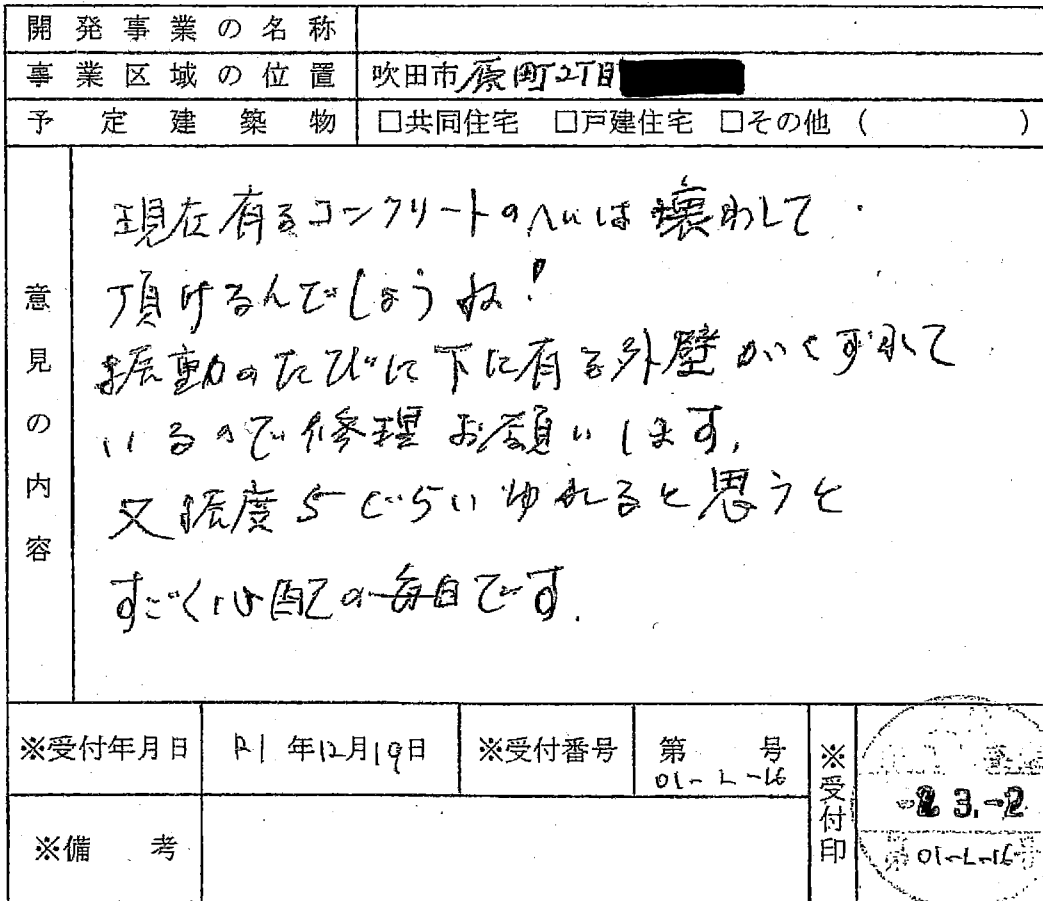 開発事業の名称
事業区域の位置 吹田市原町2丁目
予定建築物 □共同住宅 □戸建住宅 □その他 ( )
意見の内容
現在有るコンクリートのへいは壊わして
頂けるんでしょうね!
振動のたびに下に有る外壁がくずれて
いるので修理お願いします,
又振度5ぐらいゆれると思うと
すごく心配の毎日です.
※受付年月日 R1年12月19日 ※受付番号 第 号
01-L-16
※受付印
3.-2
01-L-16
※備考